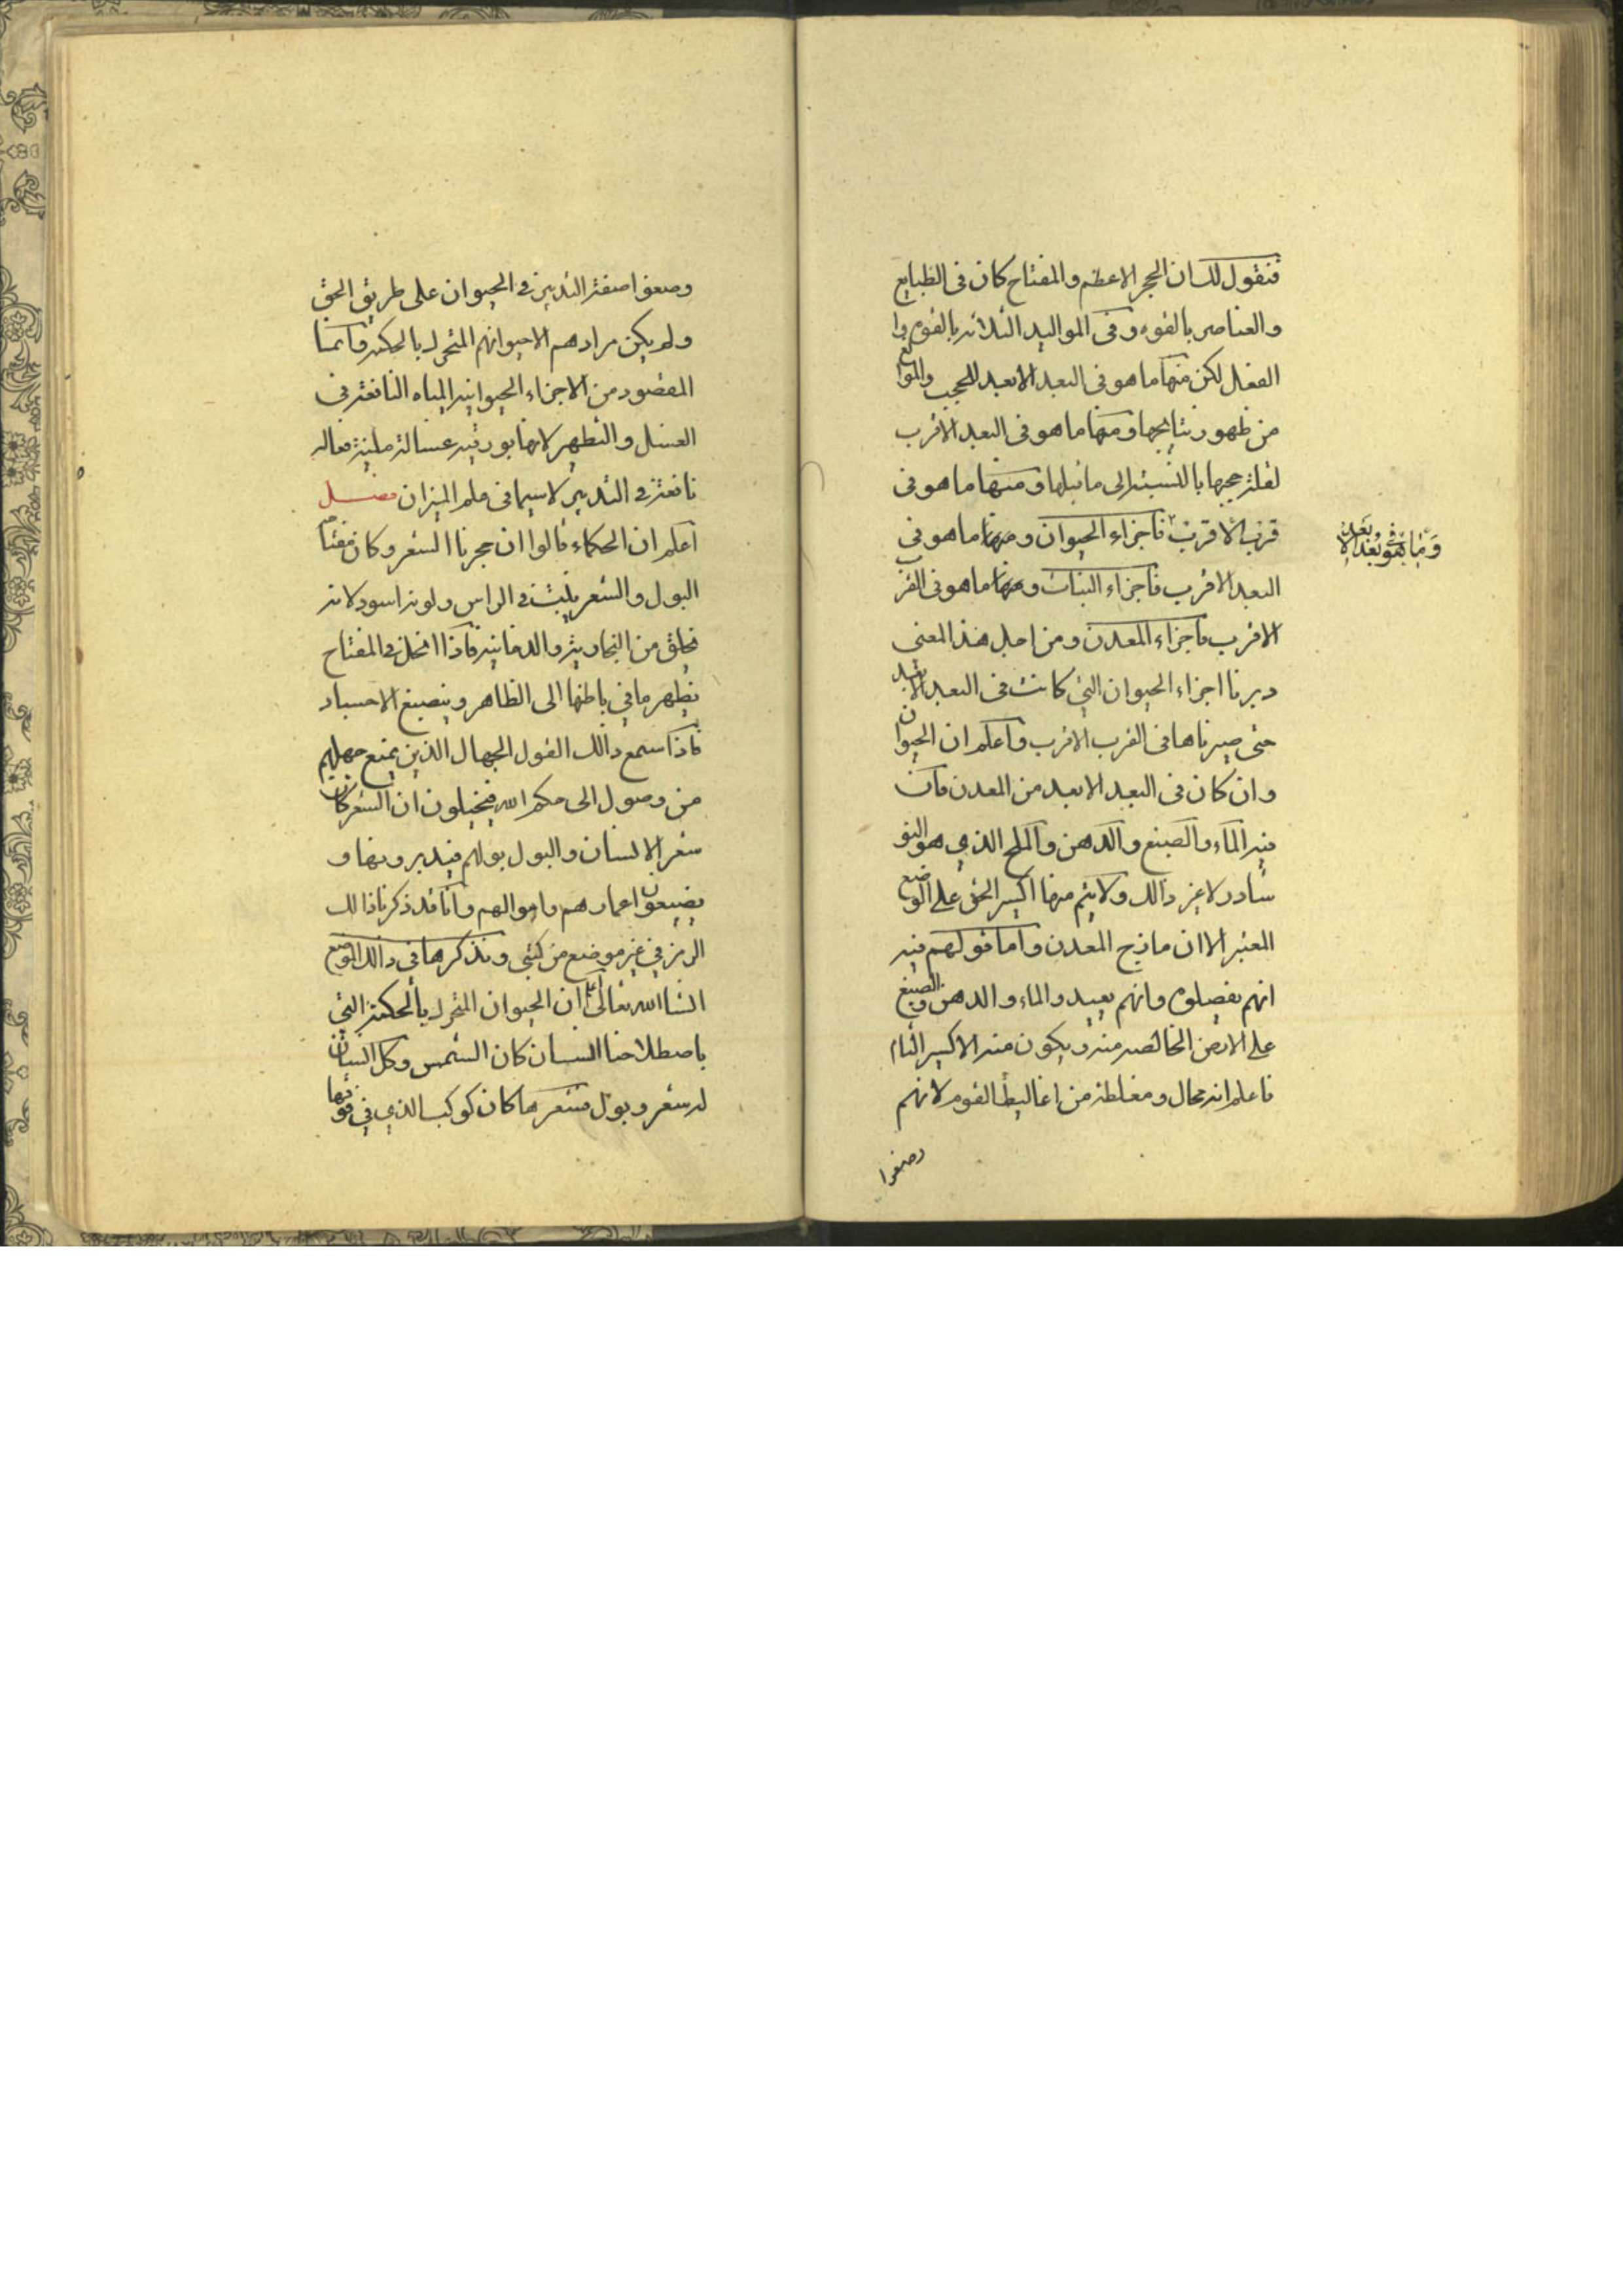 فنقول لك ان الحجر الاعظم والمفتاح كان فى الطبايع
والعناصر بالقوه وفى المواليد الثلاثه بالقوه وا
الفعل لكن منها ما هو فى البعد الابعد للحجب والموانع
من ظهور نتايجها ومنها ما هو فى البعد الاقرب
لقلة حجبها بالنسبة الى ما قبلها ومنها ما هو فى
قرب الاقرب فاجزاء الحيوان ومنها ما هو فى
البعد الاقرب فاجزاء النبات ومنها ما هو فى القرب
الاقرب فاجزاء المعدن ومن اجل هذ المعنى
دبرنا اجزاء الحيوان التي كانت فى البعد الابعد
حتى صيرناها فى القرب الاقرب واعلم ان الحيوان
وان كان فى البعد الابعد من المعدن فان
فيه الماء والصبغ والدهن والملح الذي هو النو
شادر لا غير ذالك ولا يتم منها اكسير الحق على الوضع
المعتبر الا ان مازج المعدن واما قولهم فيه
انهم يفصلوه وانهم يعيدو الماء والدهن والصبغ
على الارض الخالصه منه ويكون منه الاكسير التام
فاعلم انه محال ومغلطة من اغاليط القوم لانهم
وصنعوا
وصنعوا صنعة التدبير فى الحيوان على طريق الحق
ولم يكن مرادهم الا حيوانهم المتحرك بالحكمة وانما
المقصود من الاجزاء الحيوانيه المياه النافعة فى
الغسل والتطهير لانها بورقيه غسالة ملينة فعاله
نافعة فى التدبير لاسيما فى علم الميزان فصل
اعلم ان الحكماء قالوا ان حجرنا الشعر وكان مفتاحه
البول والشعر ينبت فى الراس ولونه اسود لانه
يخلق من البخاريه والدخانيه فاذا انحل فى المفتاح
يظهر ما في باطنها الى الظاهر وينصبغ الاجساد
فاذا سمع ذالك القول الجهال الذين يمنع جهلهم
من وصول الى حكم الله فيتخيلون ان الشعر كان
شعر الانسان والبول بولهم فيدبرونها و
يضيعون اعمارهم واموالهم وانا قد ذكرنا ذالك
الرمز في غير موضع من كتبي ونذكرها في ذالك الموضع
انشا الله تعالى اعلم ان الحيوان المتحرك بالحكمة التي
باصطلاحنا انسان كان الشمس وكل انسان
له شعر وبول فشعرها كان كوكب الذي في فوقها